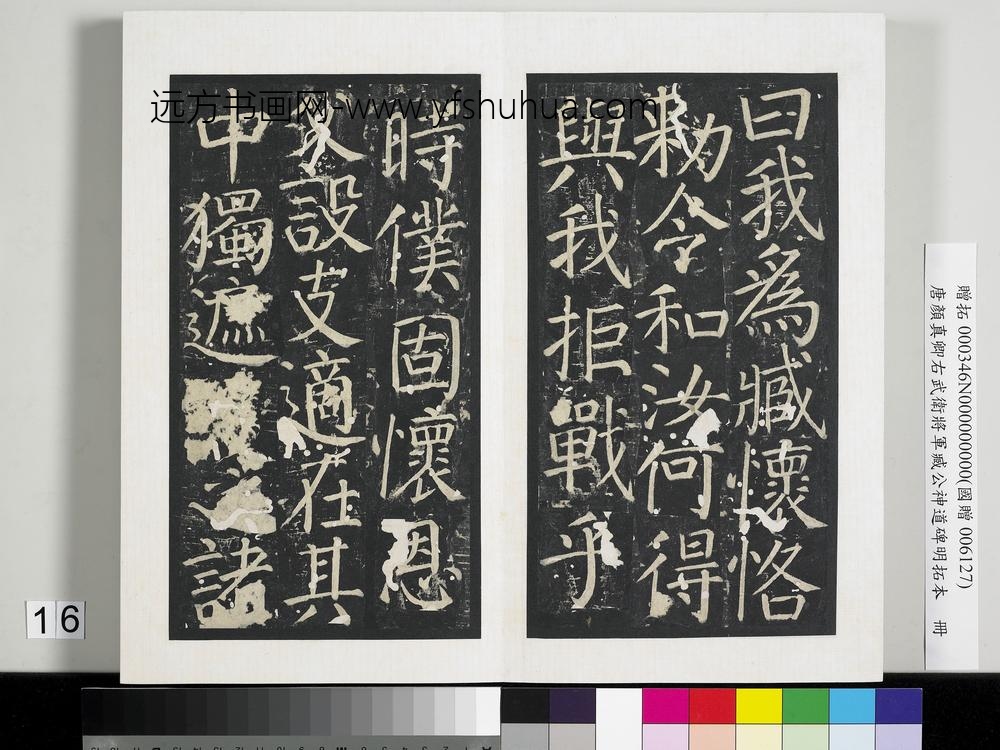 曰我為臧懷恪
敕令和汝何得
與我拒戰乎
時僕固懷恩
父設支適在其
中獨遮之諸
远方书画网-www.yfshuhua.com
贈拓 000346N000000000(國贈 006127)
唐顏真卿右武衛將軍臧公神道碑明拓本 冊
16